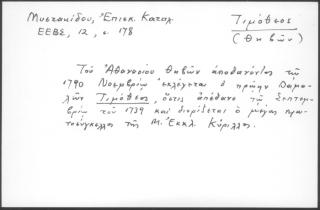 Μυστακίδου, Ἐπισκ. Καταλ.
ΕΕΒΣ, 12, σ. 178
Τιμόθεος
(Θηβῶν)
Τοῦ Ἀθανασίου Θηβῶν ἀποθανόντος τῷ
1790 Νοεμβρίῳ ἐκλέγεται ὁ πρώην Δαμα-
λῶν Τιμόθεος, ὅστις ἀπέθανε τῷ Σεπτεμ-
βρίῳ τοῦ 1739 καὶ διορίζεται ὁ μέγας πρω-
τοσύγκελλος τῆς Μ. Ἐκκλ. Κύριλλος.